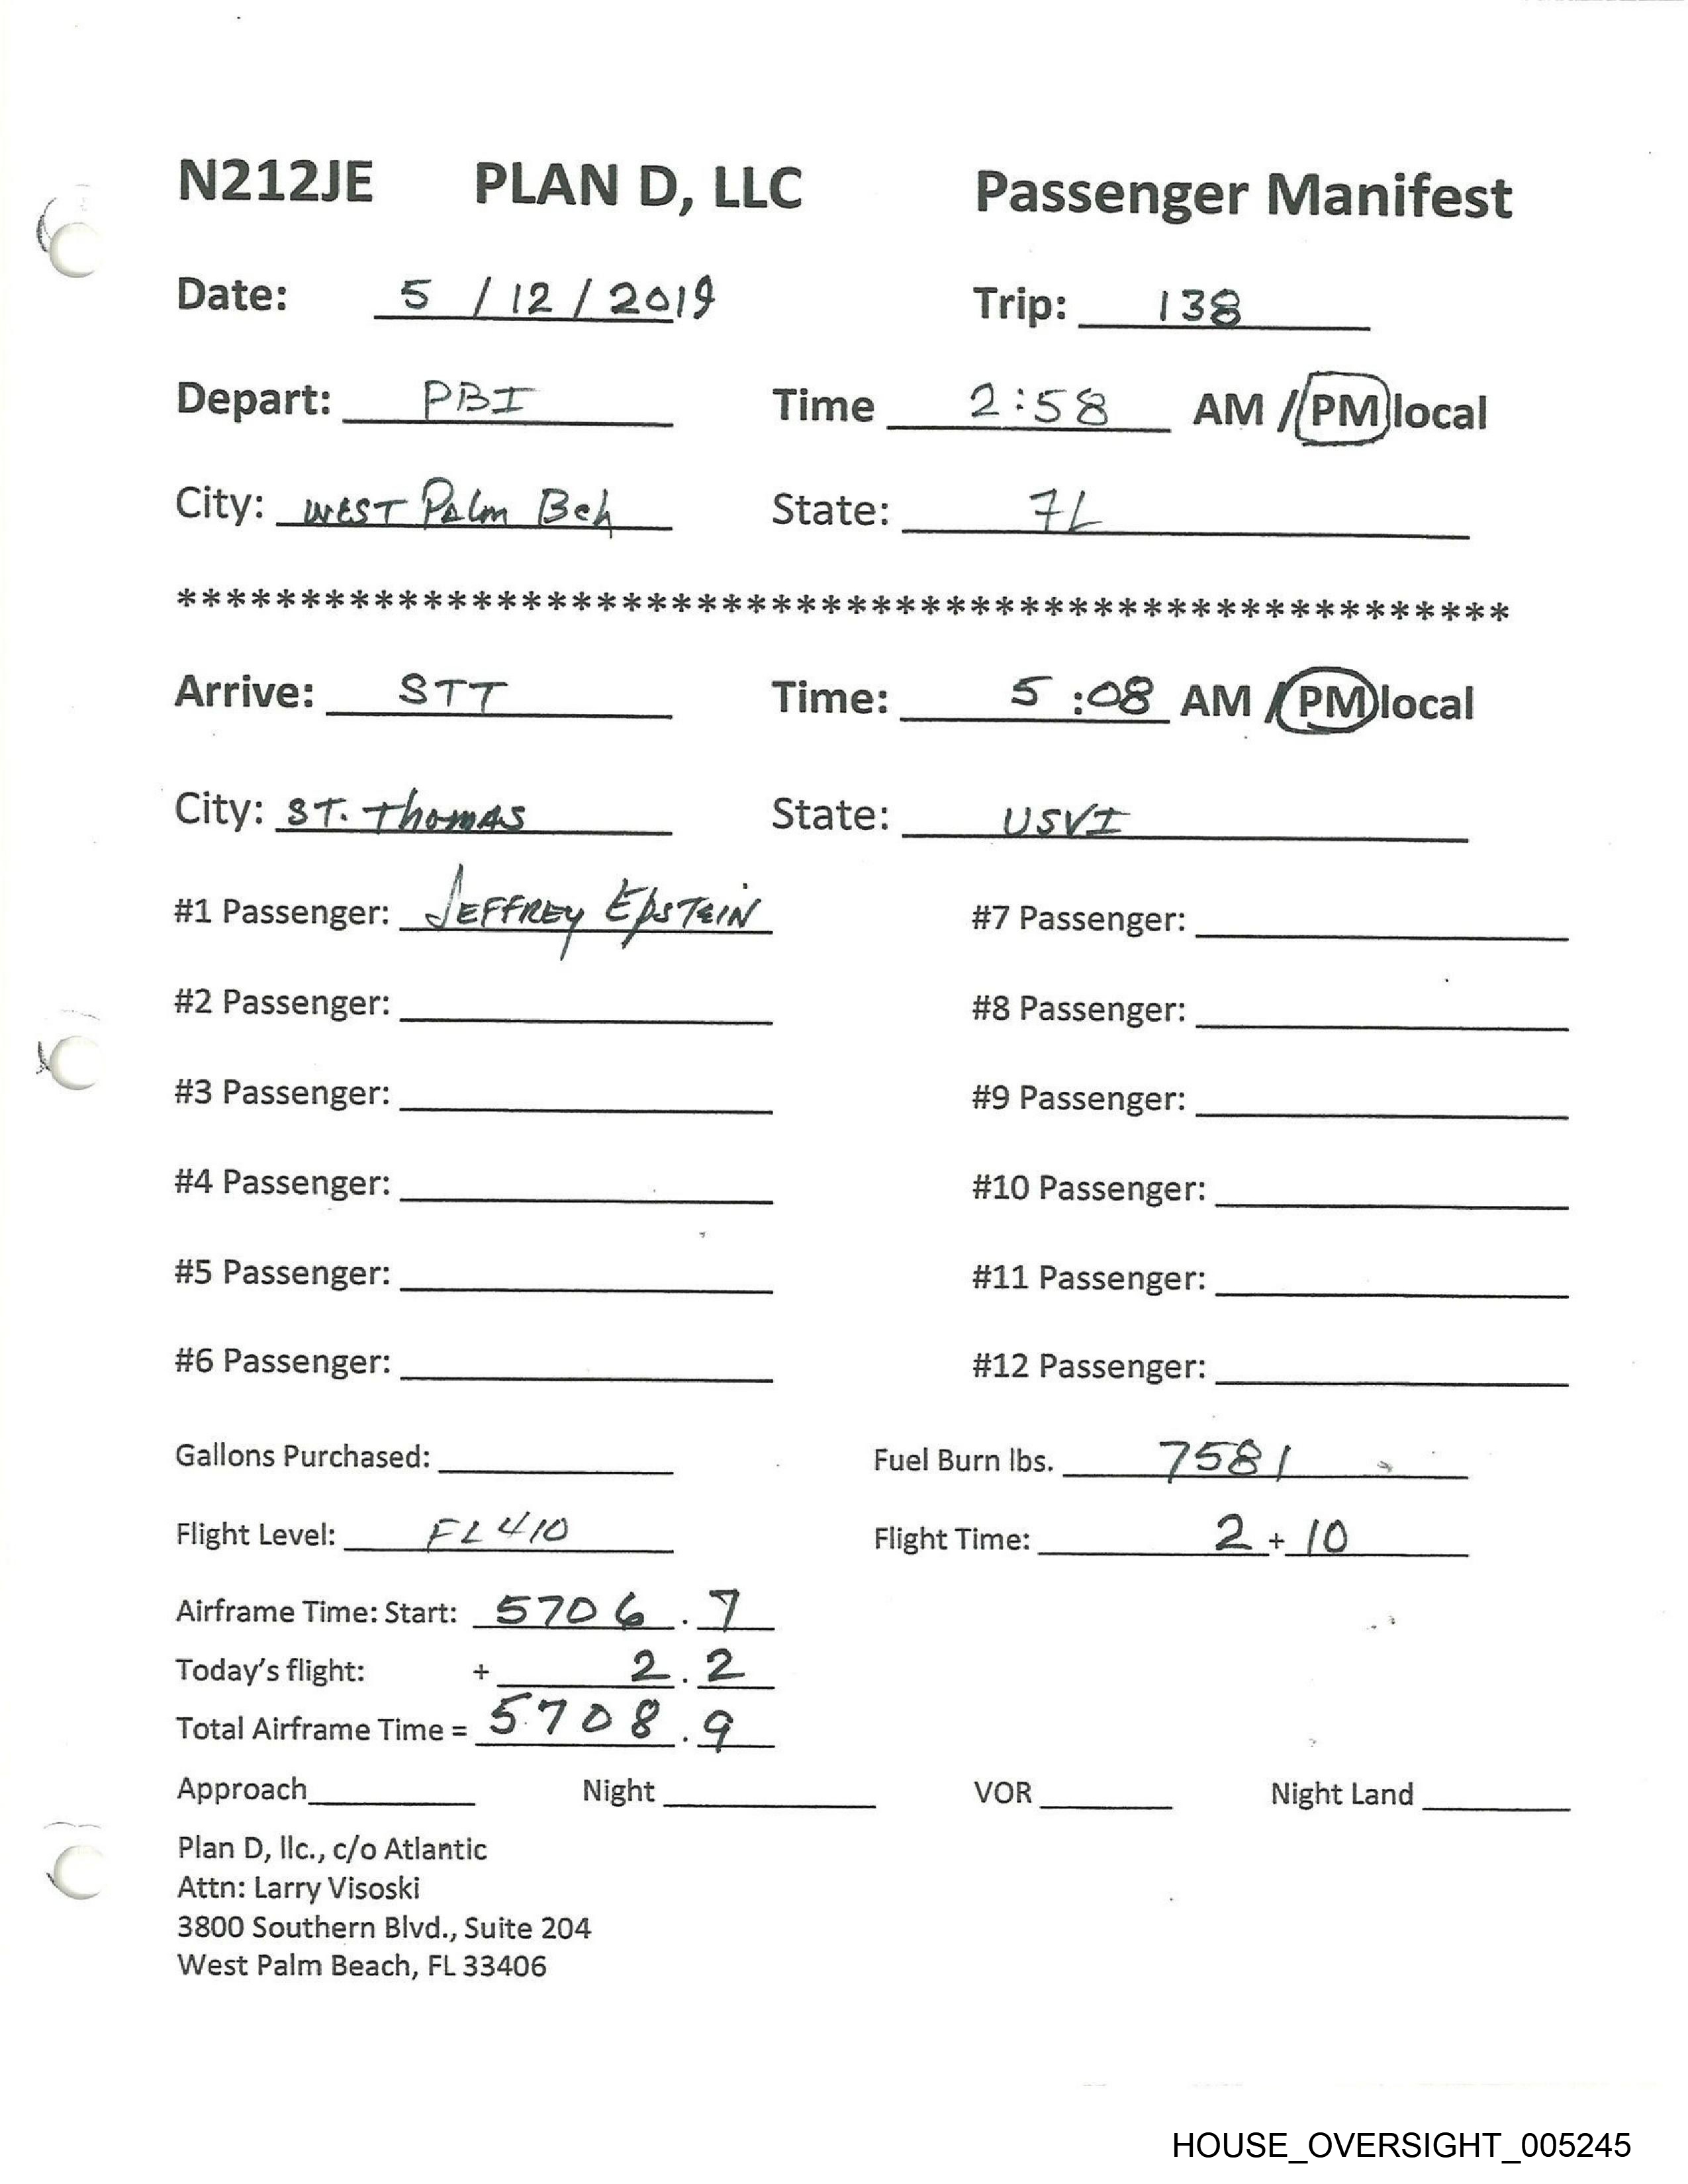 N212JE PLAN D, LLC Passenger Manifest
Date: 5 / 12 / 2019 Trip: 138
Depart: PBI Time 2:58 AM / PM local
City: WEST Palm Bch State: FL
******************************************************
Arrive: STT Time: 5:08 AM / PM local
City: ST. Thomas State: USVI
#1 Passenger: JEFFREY EpSTEIN #7 Passenger:
#2 Passenger: #8 Passenger:
#3 Passenger: #9 Passenger:
#4 Passenger: #10 Passenger:
#5 Passenger: #11 Passenger:
#6 Passenger: #12 Passenger:
Gallons Purchased: Fuel Burn lbs. 7581
Flight Level: FL410 Flight Time: 2 + 10
Airframe Time: Start: 5706.7
Today's flight: + 2.2
Total Airframe Time = 5708.9
Approach Night VOR Night Land
Plan D, llc., c/o Atlantic
Attn: Larry Visoski
3800 Southern Blvd., Suite 204
West Palm Beach, FL 33406
HOUSE_OVERSIGHT_005245